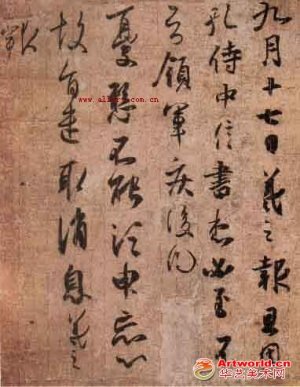 九月十七日羲之報且因
孔侍中信書想必至不
知領軍疾後問
憂懸不能須臾忘心
故旬遣取消息羲之
報
Artworld.cn
华艺美术网